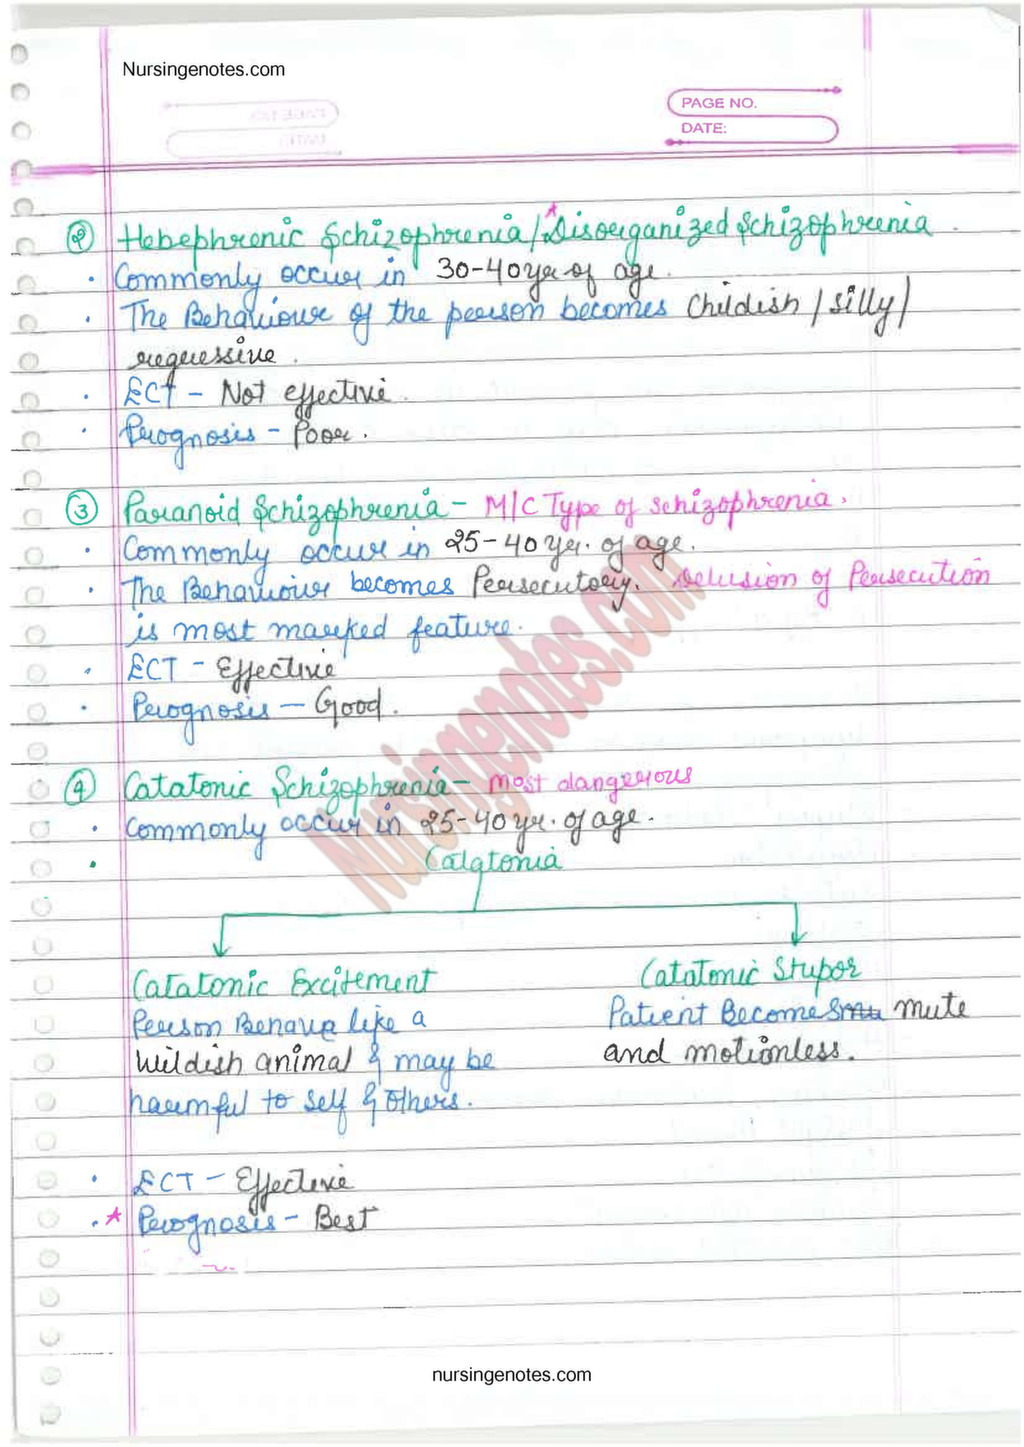 Nursingenotes.com
PAGE NO.
DATE:
② Hebephrenic Schizophrenia/*Disorganized Schizophrenia.
· Commonly occur in 30-40 yr of age.
· The Behaviour of the person becomes Childish / Silly/
regressive.
· ECT - Not effective.
· Prognosis - Poor.
③ Paranoid Schizophrenia - M/C Type of schizophrenia.
· Commonly occur in 25-40 yr. of age.
· The Behaviour becomes Persecutory. Delusion of Persecution
is most marked feature.
· ECT - Effective
· Prognosis - Good.
④ Catatonic Schizophrenia - most dangerous
· Commonly occur in 25-40 yr. of age.
· Catatonia
Catatonic Excitement
Person Behave like a
wildish animal & may be
harmful to self & others.
Catatonic Stupor
Patient Becomes mute
and motionless.
· ECT - Effective
· * Prognosis - Best
Nursingenotes.com
nursingenotes.com